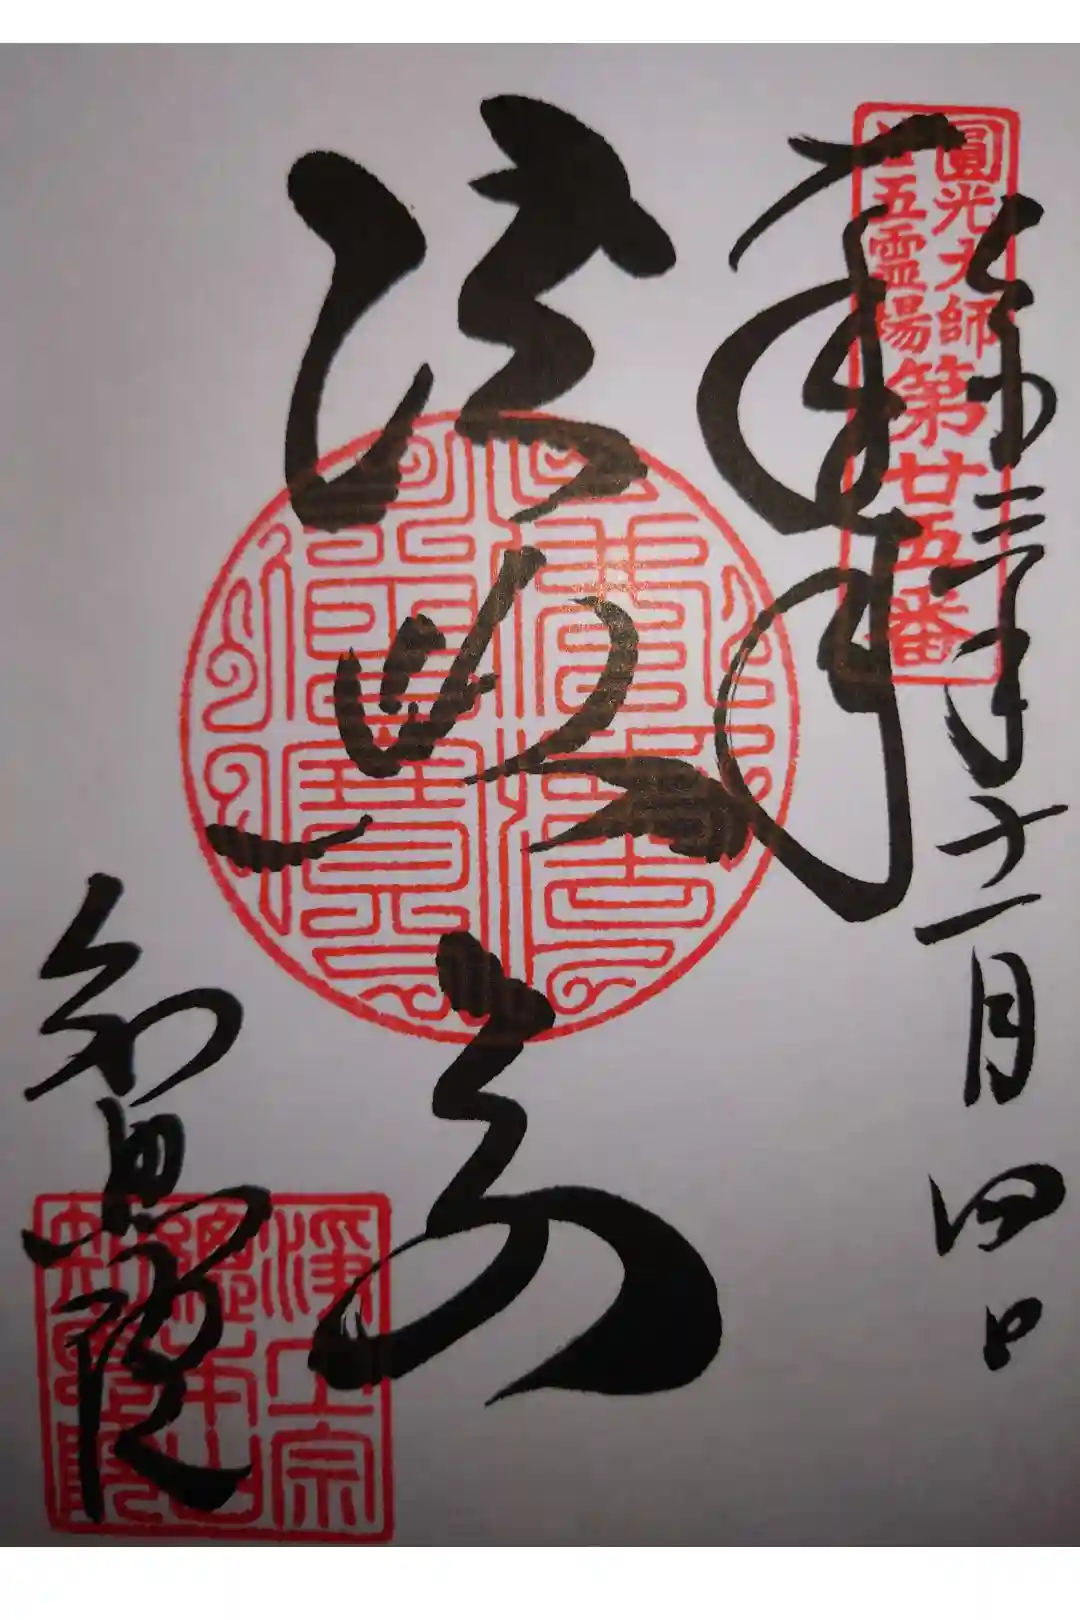 圓光大師
廿五霊場
第廿五番
令和三年十一月四日
奉拝
佛法僧寶
法
知恩院
淨土宗
總本山
知恩院